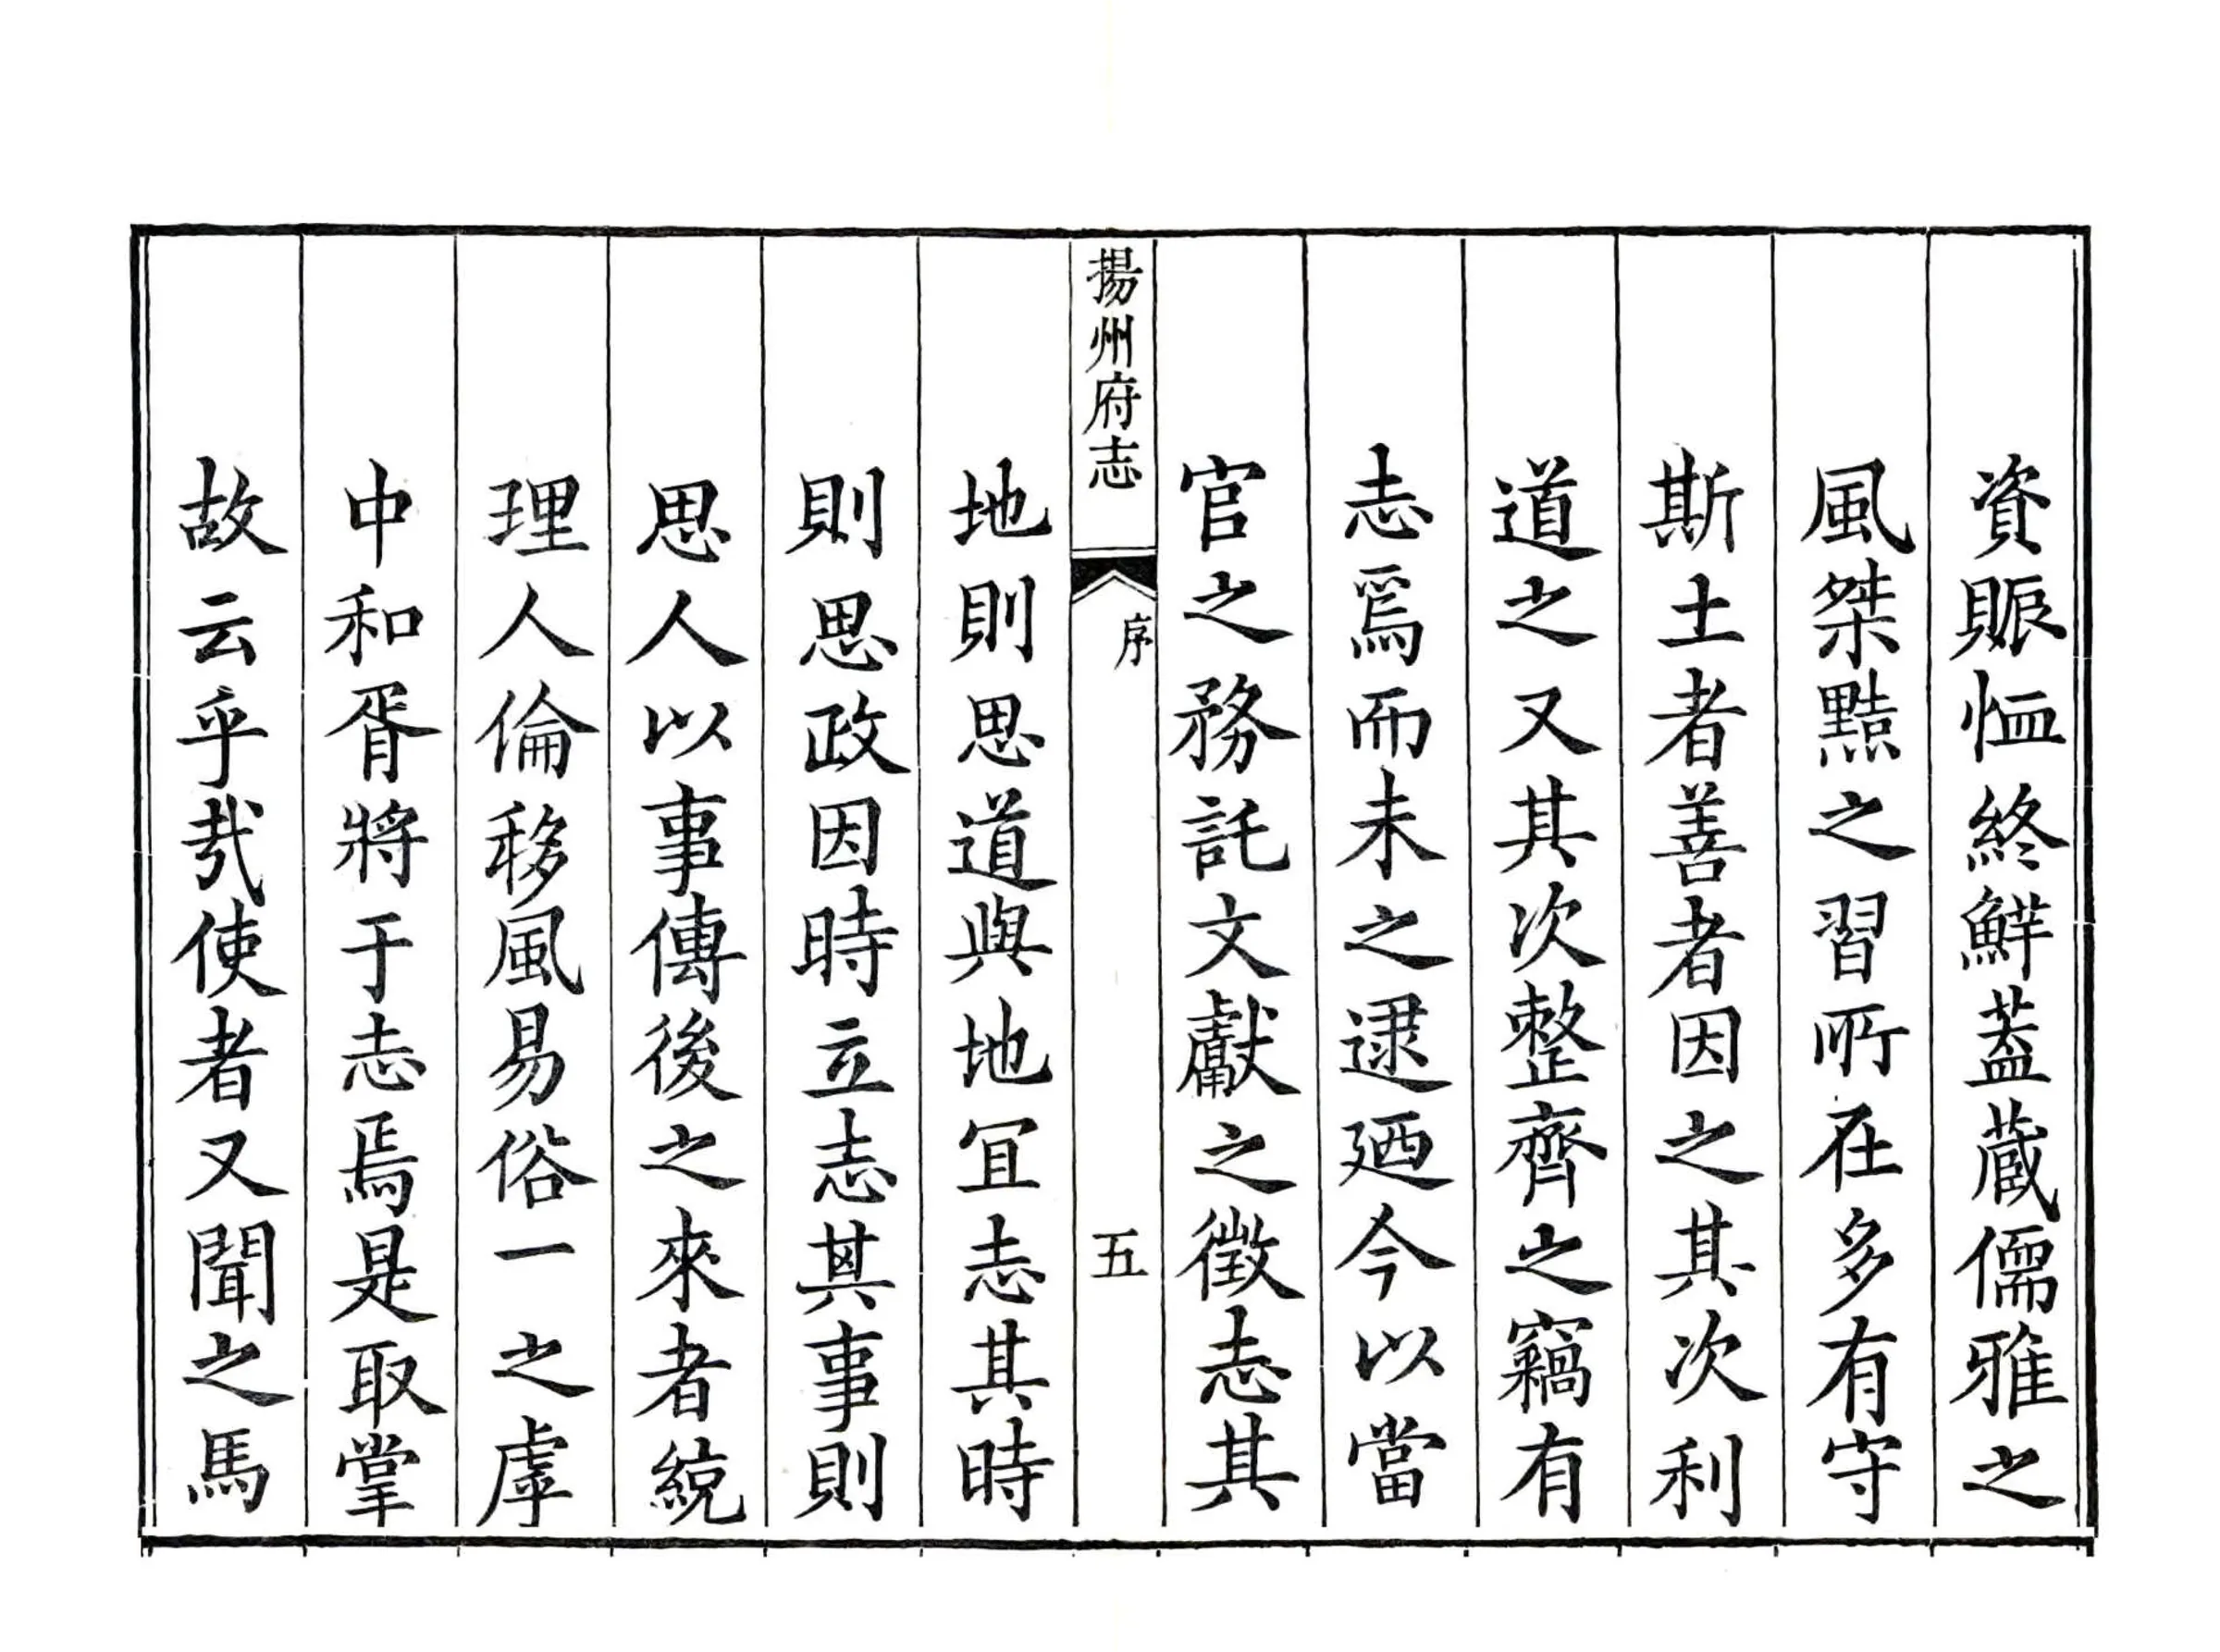 資賑恤終鮮蓋蔵儒雅之
風桀黠之習所在多有守
斯土者善者因之其次利
道之又其次整齊之竊有
志焉而未之逮廼今以當
官之務託文獻之徵志其
揚州府志
序
五
地則思道與地宜志其時
則思政因時立志其事則
思人以事傳後之來者統
理人倫移風易俗一之虖
中和胥將于志焉是取掌
故云乎哉使者又聞之馬